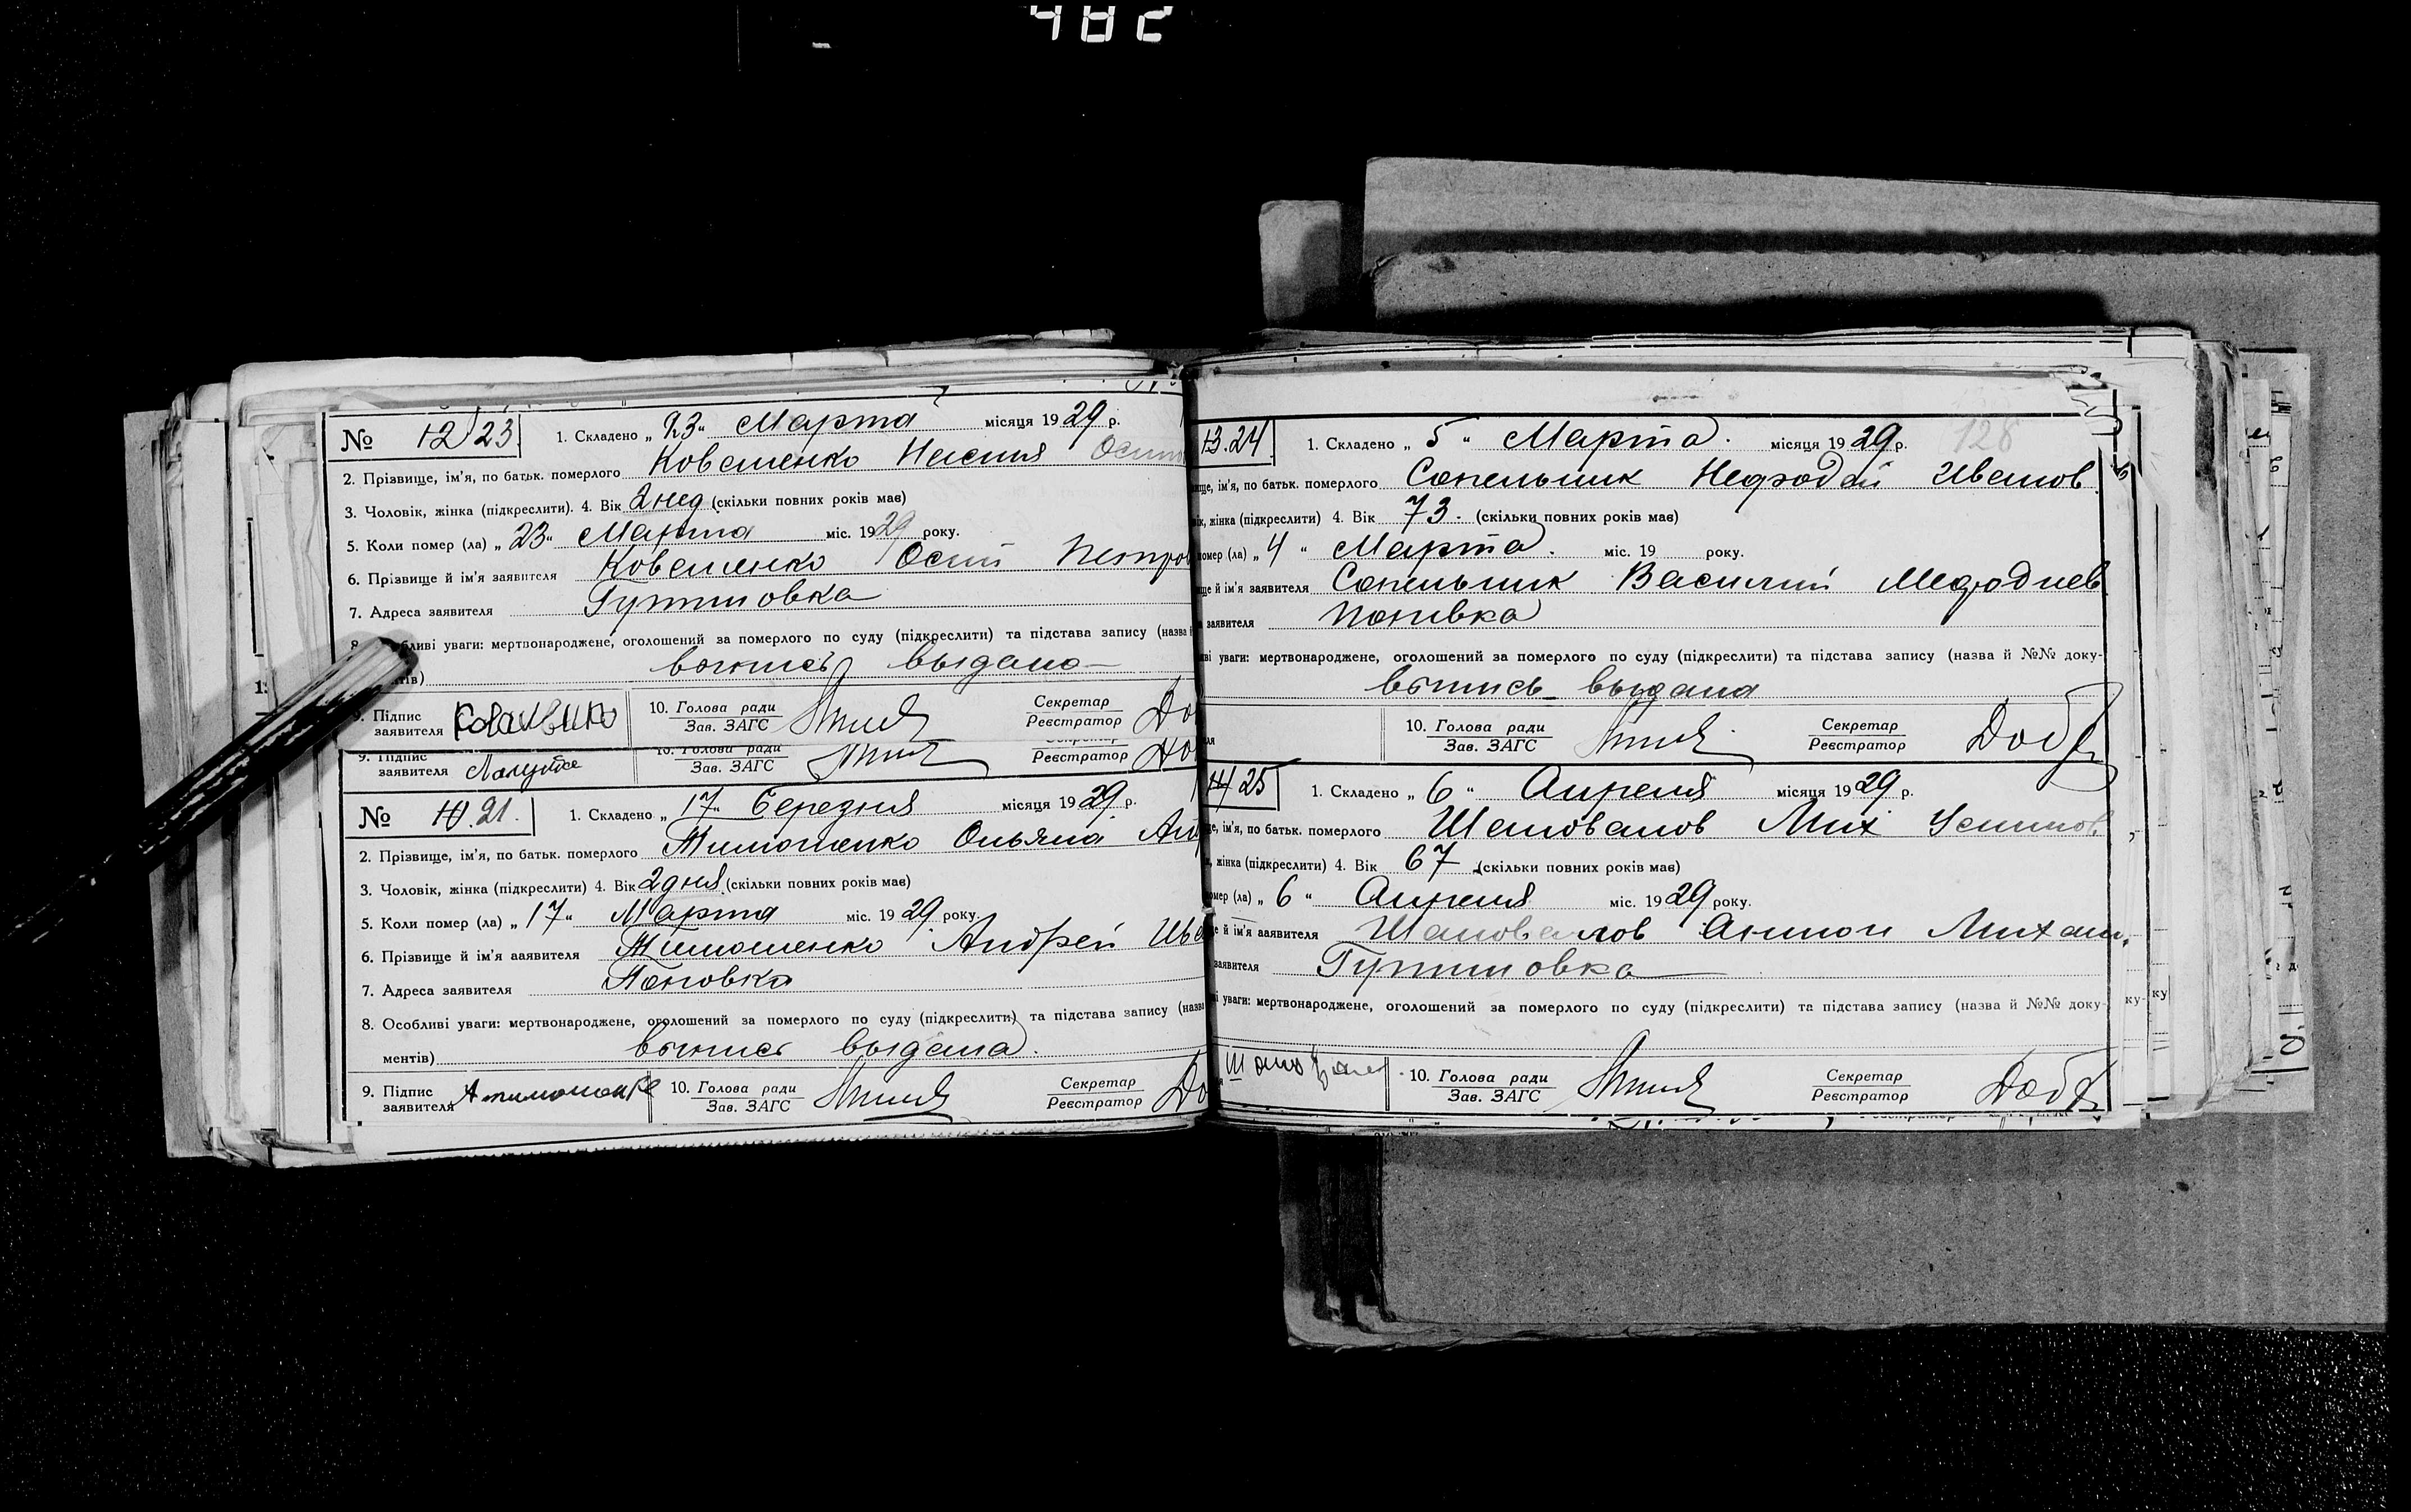 482
№ 12 23 1. Складено „ 23 “ Марта місяця 19 29 р.
2. Прізвище, ім'я, по батьк. померлого Коваленко
3. Чоловік, жінка (підкреслити). 4. Вік 2 нед (скільки повних років має)
5. Коли помер (ла) „ 23 “ Марта міс. 19 29 року.
6. Прізвище й ім'я заявителя Коваленко Осип Петров
7. Адреса заявителя
уваги: мертвонароджене, оголошений за померлого по суду (підкреслити) та підстава запису (назва
выдана
9. Підпис заявителя 10. Голова ради Зав. ЗАГС Секретар Реєстратор До
9. Підпис заявителя 10. Голова ради Зав. ЗАГС Секретар Реєстратор До
№ 10. 21. 1. Складено „ 17 “ Березня місяця 19 29 р.
2. Прізвище, ім'я, по батьк. померлого Тимошенко Ульяна Анд
3. Чоловік, жінка (підкреслити) 4. Вік 2 дня (скільки повних років має)
5. Коли помер (ла) „ 17 “ Марта міс. 19 29 року.
6. Прізвище й ім'я заявителя Тимошенко Андрей Ива
7. Адреса заявителя Поповка
8. Особливі уваги: мертвонароджене, оголошений за померлого по суду (підкреслити) та підстава запису (назва
ментів) выпись выдана.
9. Підпис заявителя А тимошенко 10. Голова ради Зав. ЗАГС Секретар Реєстратор До
13. 24 1. Складено „ 5 “ Марта. місяця 19 29 р. 128
ім'я, по батьк. померлого Сапельник Иванов
жінка (підкреслити) 4. Вік 73. (скільки повних років має)
омер (ла) „ 4 “ Марта. міс. 19 року.
й ім'я заявителя Сапельник Василий
заявителя Поповка
уваги: мертвонароджене, оголошений за померлого по суду (підкреслити) та підстава запису (назва й №№ доку-
выпись выдана
10. Голова ради Зав. ЗАГС Секретар Реєстратор Добр
14 25 1. Складено „ 6 “ Апреля місяця 19 29 р.
ім'я, по батьк. померлого Шаповалов Мих
жінка (підкреслити) 4. Вік 67 (скільки повних років має)
омер (ла) „ 6 “ Апреля міс. 19 29 року.
й ім'я заявителя Шаповалов Антон Михаил.
заявителя
уваги: мертвонароджене, оголошений за померлого по суду (підкреслити) та підстава запису (назва й №№ доку-
10. Голова ради Зав. ЗАГС Секретар Реєстратор Добр